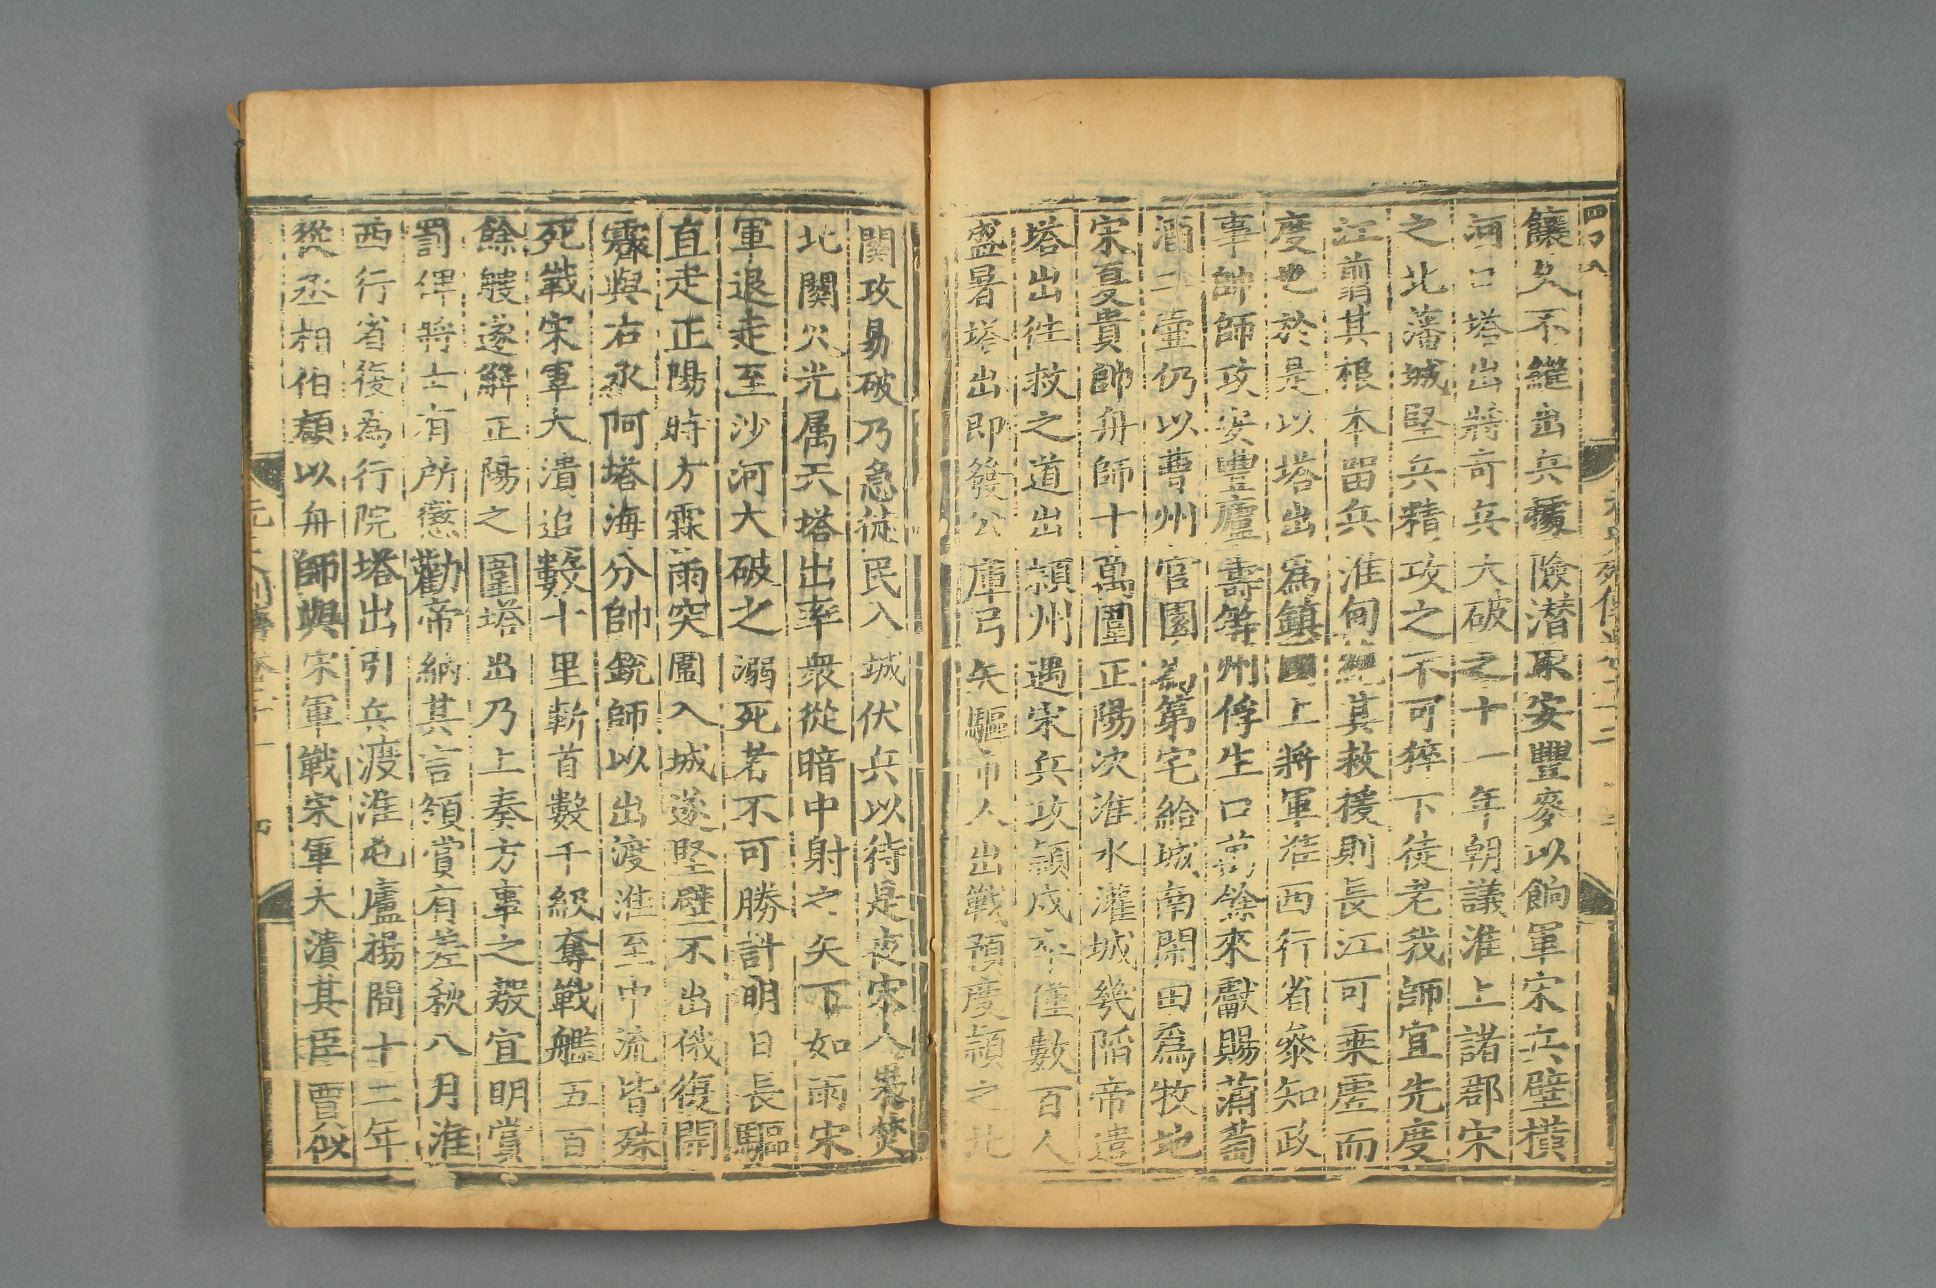 饟久不繼出兵據險潛取安豐麥以餉軍宋兵壁橫
河口塔出將奇兵大破之十一年朝議淮上諸郡宋
之北藩城堅兵精攻之不可猝下徒老我師宜先度
江翦其根本留兵淮甸絶其救援則長江可乗虛而
度也於是以塔出爲鎮國上將軍淮西行省叅知政
事帥師攻安豐廬壽等州俘生口萬餘來獻賜蒲萄
酒二壷仍以曹州官園爲第宅給城南閑田爲牧地
宋夏貴帥舟師十萬圍正陽決淮水灌城幾陷帝遣
塔出徃救之道出頴州遇宋兵攻頴戍卒僅數百人
盛暑塔出即發公庫弓矢驅市人出戰預度頴之北
關攻易破乃急徙民入城伏兵以待是夜宋人果焚
北關火光属天塔出率衆從暗中射之矢下如雨宋
軍退走至沙河大破之溺死者不可勝計明日長驅
直走正陽時方霖雨突圍入城遂堅壁不出俄復開
霽與右丞阿塔海分帥銳師以出渡淮至中流皆殊
死戰宋軍大潰追數十里斬首數千級奪戰艦五百
餘艘遂解正陽之圍塔出乃上奏方事之殷宜明賞
罰俾將士有所懲勸帝納其言頒賞有差秋八月淮
西行省復爲行院塔出引兵渡淮屯廬揚間十二年
從丞相伯顏以舟師與宋軍戰宋軍大潰其臣賈似